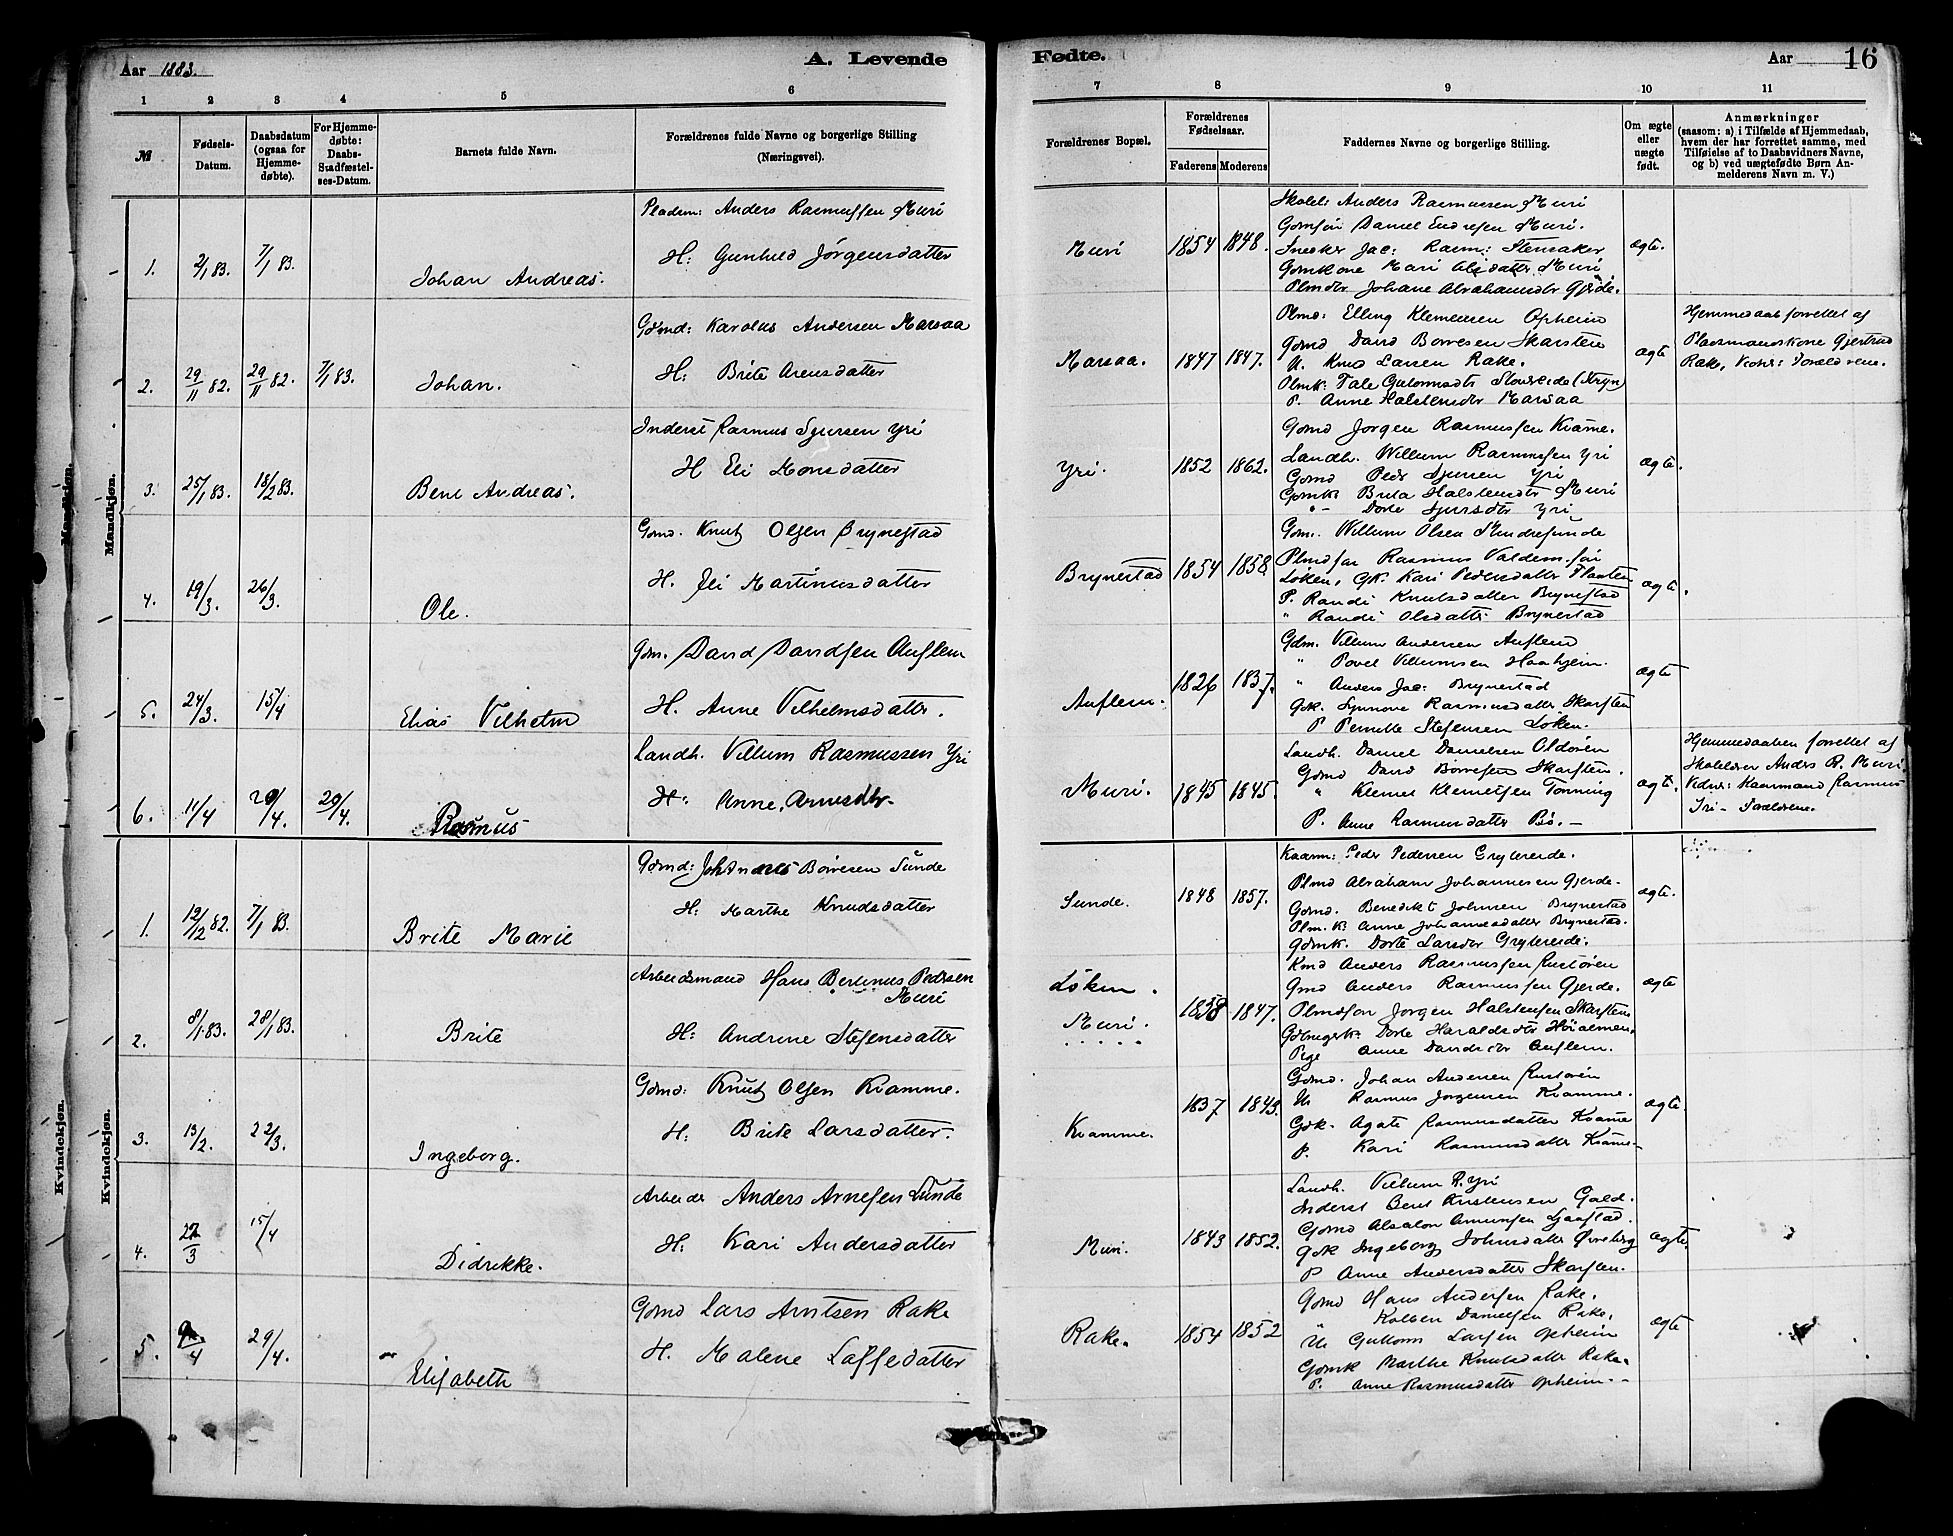 Aar 1883.
A. Levende
Fødte.
Aar
16
1 2 3 4 5 6 7 8 9 10 11
№
Fødsels-
Datum.
Daabsdatum
(ogsaa for
Hjemme-
døbte).
For Hjemme-
døbte:
Daabs-
Stadfæstel-
ses-Datum.
Barnets fulde Navn.
Forældrenes fulde Navne og borgerlige Stilling
(Næringsvei).
Forældrenes Bopæl.
Forældrenes
Fødselsaar.
Faderens
Moderens
Faddernes Navne og borgerlige Stilling.
Om ægte
eller
uægte
født.
Anmærkninger
(saasom: a) i Tilfælde af Hjemmedaab,
hvem der har forrettet samme, med
Tilføielse af to Daabsvidners Navne,
og b) ved uægtefødte Børn An-
melderens Navn m. V.)
Mandkjøn.
Mandkjøn.
1. 2/1 83. 7/1 83. Johan Andreas.
Pladsm: Anders Rasmussen Muri
H: Gunhild Jørgensdatter
Muri 1854 1848.
Skolel: Anders Rasmussen Muri
Gdmsøn Daniel Endresen Muri.
Snedker Jac: Rasm: Stensaker
Gdmkone Mari Olsdatter Muri
Plmdtr Johane Abrahamsdtr Gjerde.
ægte.
2. 29/11 82. 29/11 82. 7/1 83. Johan.
Gdmd: Karolus Andersen Marsaa
H: Brite Arensdatter
Marsaa. 1847 1847.
Plmd: Elling Klemetsen Opheim
Gdmd David Børresen Skarsten
U. Knud Larsen Rake.
Plmk. Tale Guttormsdtr (Stryn)
P. Anne Halstensdtr Marsaa
ægte
Hjemmedaab forrettet af
Pladsmandskone Gjertrud
Rake, Vidner: Forældrene.
3. 25/1 83. 18/2 83. Bent Andreas.
Inderst Rasmus Sjursen Yri
H Eli Monsdatter
Yri. 1852 1862.
Gdmd Jørgen Rasmussen Kvame.
Landh. Willum Rasmussen Yri
Gdmd Peder Sjursen Yri
Gdmk Brita Halstensdtr Muri
"- Dorte Sjursdtr Yri
ægte.
4. 19/3. 26/3. Ole.
Gdmd. Knut Olsen Brynestad
H. Eli Martinusdatter
Brynestad 1854 1858
Gdm. Willum Olsen
Plmdsøn Rasmus
Løken, Gk. Kari Pedersdatter
P. Randi Knutsdatter Brynestad
" Randi Olsdatter Brynestad
ægte.
5. 24/3. 15/4 Elias Vilhelm
Gdm. David Davidsen Auflem
H. Anne Vilhelmsdatter.
Auflem. 1826 1837.
Gdm. Villum Andersen Auflem
" Povel Villumsen Haahjem.
" Anders Jac: Brynestad
Gdk. Synnøve Rasmusdatter Skarsten
P Pernille Stefensen Løken.
ægte
6. 11/4 20/4. 20/4. Rasmus
Landh. Villum Rasmussen Yri
H: Anne Arnesdtr.
Muri. 1845 1845.
Landh. Daniel Danielsen Oldøren
Gdmd David Børresen Skarsten.
" Klemet Klemetsen Tonning
P. Anne Rasmusdatter Bø.-
ægte.
Hjemmedaaben forrettet af
Skolelærer Anders R. Muri.
Vidner: Kaarmand Rasmus
Yri - Forældrene.
Kvindekjøn.
Kvindekjøn.
1. 12/12 82. 7/1 83. Brite Marie
Gdmd: Johannes Børresen Sunde
H: Marthe Knudsdatter
Sunde. 1848 1857.
Kaarm: Peder Pedersen Grytereide.
Plmd Abraham Johannesen Gjerde.
Gdmd. Benedikt Johnsen Brynestad
Plm.K. Anne Johannesdatter Brynestad.
Gdmk. Dorte Larsdtr Grytereide.
ægte.
2. 8/1 83. 28/1 83. Brite
Arbeidsmand Hans Bertinus Pedersen
Muri
H: Andrine Stefensdatter
Løken.
Muri. 1858 1847.
Kmd Anders Rasmussen Rustøen
Gmd Anders Rasmussen Gjerde.
Plmdsøn Jørgen Halstensen Skarsten
Dorte Haraldsdtr
Pige Anne Davidsdtr Auflem.
ægte
3. 13/2. 22/3. Ingeborg.
Gdmd: Knut Olsen Kvamme.
H: Brite Larsdatter.
Kvamme. 1837 1843.
Gdmd. Johan Andersen Rustøen
U Rasmus Jørgensen Kvamme.
Gdk. Agate Rasmusdatter Kvame
P. Kari Rasmusdatter Kvame-
ægte.
4. 22/3 15/4 Didrikke.
Arbeider Anders Arnesen Sunde
H: Kari Andersdatter
Muri. 1843 1852.
Landh. Villum R. Yri
Inderst Bent Kristensen Gald.
Gdmd Absalon
Gdk Ingeborg Johnsdatter
P Anne Andersdatter Skarsten.
ægte.
5. /4 29/4. Elisabeth
Gdmd Lars Arntsen Rake
H. Malene Laffedatter
Rake. 1854 1852
Gdmd Hans Andersen Rake.
" Kolben Danielsen Rake.
U Guttorm Larsen Opheim
Gdmk Marthe Knutsdatter Rake.
P. Anne Rasmusdatter Opheim.-
ægte